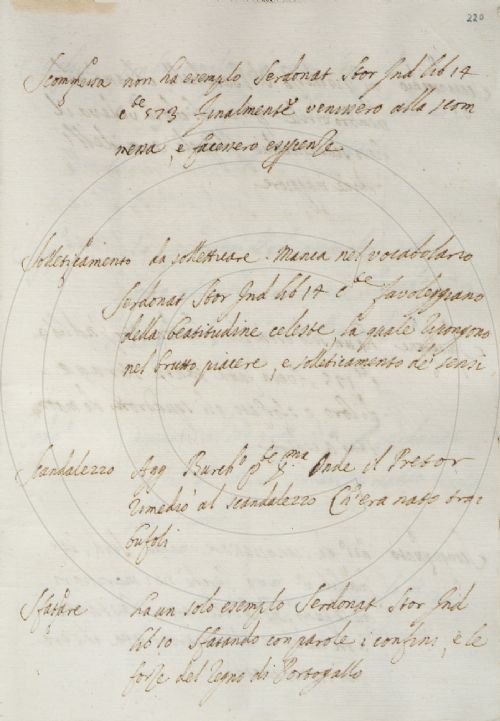 220
Scommessa non ha esempio Serdonat Stor Ind lib 14
573 finalmente vennero alla scom
messa, e fecero
Solleticamento da solleticare. Manca nel vocabolario
Serdonat Stor Ind lib 14 favoleggiano
della beatitudine celeste, la quale pongono
nel brutto piacere, e solleticamento de' sensi
Scandalezzo Agg Burch Onde il Pretor
rimediò al scandalezzo Ch'era nato trai
bufoli
Sfatare ha un solo esempio Serdonat Stor Ind
lib 10 Sfatando con parole i confini, e le
forze del Regno di Portogallo